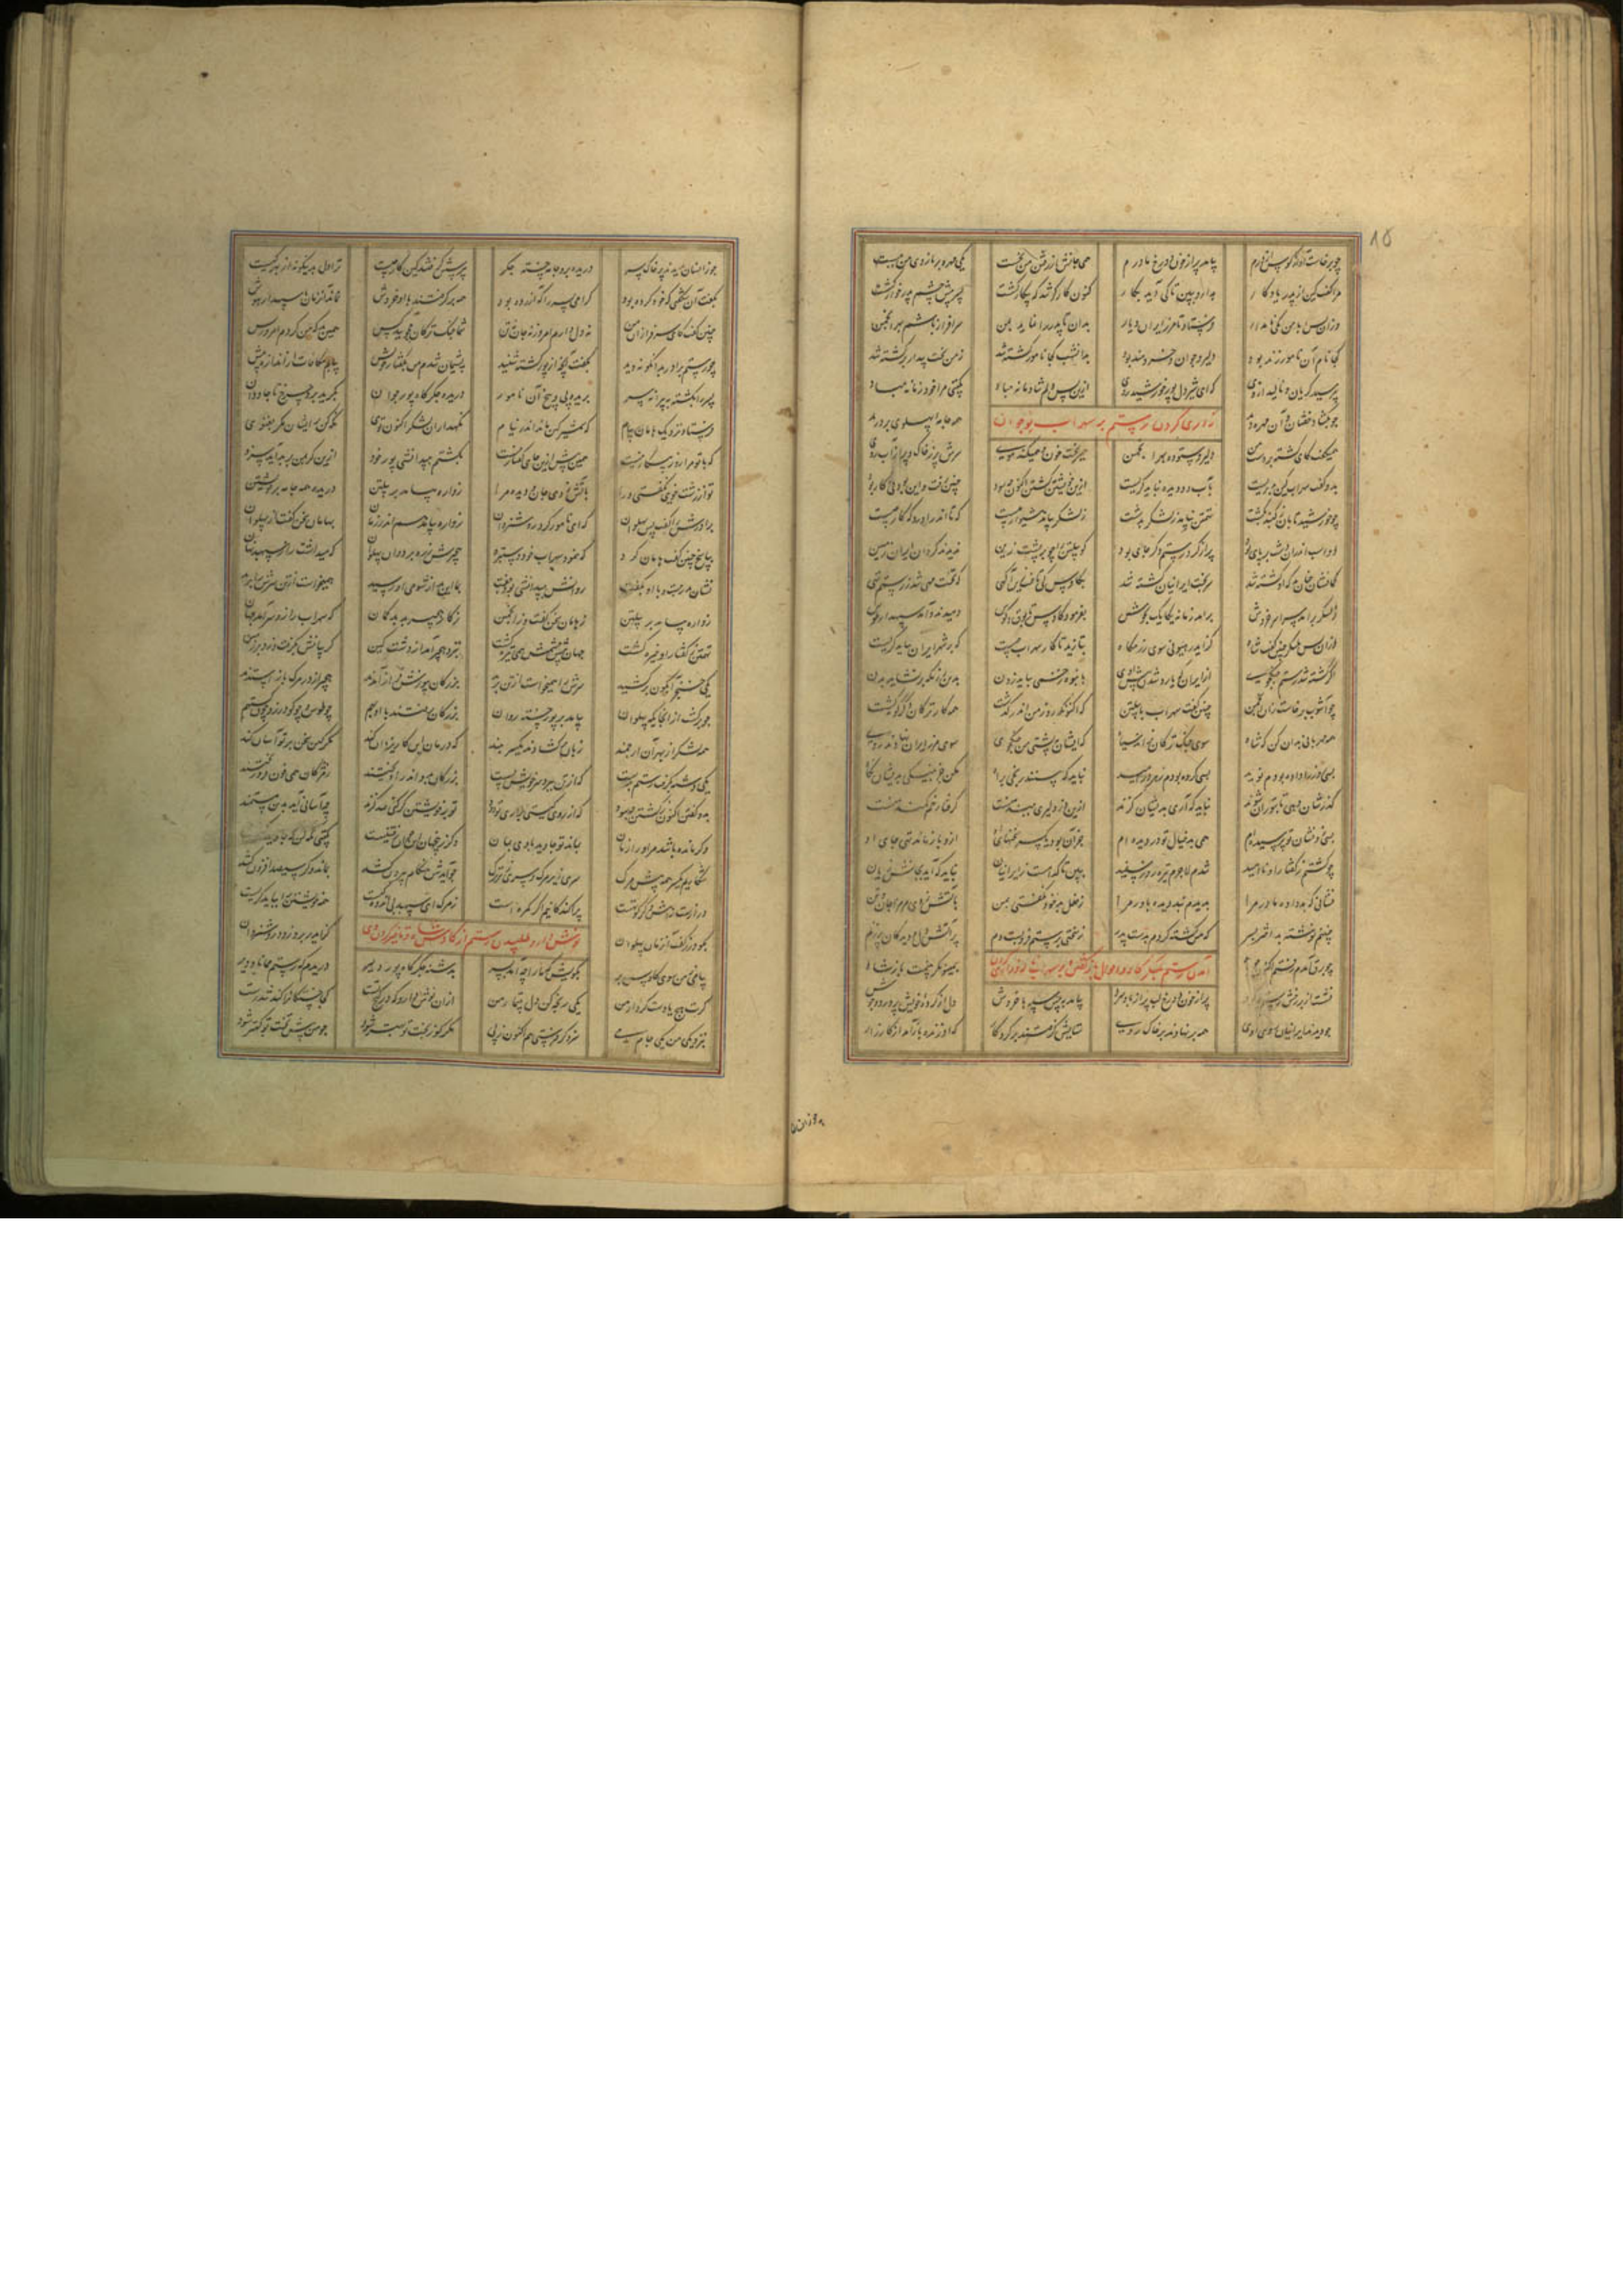 ۱۵
چو برخاست آواز کوس از درم بیامد پر از خون دو رخ مادرم همی جانش از رفتن من بخست یکی مهره بر بازوی من ببست
مرا گفت کین از پدر یادگار بدار و ببین تا کی آید بکار کنون کارگر شد که بیکار گشت پسر پیش چشم پدر خوار گشت
وزان پس بمن نامدار فرستاد تا مرز ایران بدان تا پدر را نماید بمن سرافراز باشم بهر انجمن
کجا نام آن نامور زنده بود دلیر و جوان و خردمند بود بدانشب کجا نامور کشته شد ز من بخت بیدار برگشته شد
بپرسید گریان و نالید ازوی که ای شیر دل پور خورشید روی ازین پس دلم شادمانه مباد بگیتی مرا خود زمانه مباد
زاری کردن رستم بر سهراب نوجوان
چو بگشاد خفتان و آن مهره دید همه جامه پهلوی بر درید
همیگفت کای کشته بر دست من دلیر و ستوده بهر انجمن همیریخت خون و همیکند موی سرش پر ز خاک و پر از آب روی
بدو گفت سهراب کین بدتریست بآب دو دیده نباید گریست ازین خویشتن کشتن اکنون چه سود چنین رفت و این بودنی کار بود
چو خورشید تابان ز گنبد بگشت تهمتن نیامد ز لشکر بدشت ز لشکر بیامد هشیوار بیست که تا اندر آوردگه کار چیست
دو اسب اندران دشت بر پای بود پر از گرد رستم دگر جای بود گو پیلتن را چو بر پشت زین ندیدند گردان ایران زمین
گمانشان چنان بد که او کشته شد سر بخت ایرانیان گشته شد بکاوس کی تاختند آگهی که تخت مهی شد ز رستم تهی
ز لشکر برآمد سراسر خروش برآمد زمانه یکایک بجوش بفرمود کاوس تا بوق و کوس دمیدند و آمد سپهدار طوس
وزان پس بلشکر چنین گفت شاه کز ایدر هیونی سوی رزمگاه بتازید تا کار سهراب چیست که بر شهر ایران بباید گریست
اگر کشته شد رستم جنگجوی از ایران که یارد شدن پیش اوی بانبوه زخمی بباید زدن برین رزمگه بر نشاید بدن
چو آشوب برخاست زان انجمن چنین گفت سهراب با پیلتن که اکنون که روز من اندر گذشت همه کار ترکان دگرگونه گشت
همه مهربانی بدان کن که شاه سوی جنگ ترکان نراند سپاه که ایشان به پشتی من جنگجوی سوی مرز ایران نهادند روی
بسی روز را داده بودم نوید بسی کرده بودم ز هر در امید نباید که بینند رنجی براه مکن جز بنیکی بدیشان نگاه
گذرشان دهی تا بتوران شوند نباید که آری بدیشان گزند ازین دژ دلیری ببند منست گرفتار خم کمند منست
بسی زو نشان تو پرسیده ام همی بد خیال تو در دیده ام جز آن بود یکسر سخنهای او ازو باز ماند تهی جای او
چو گشتم ز گفتار او ناامید شدم لاجرم تیره روز سپید ببین تا که است از ایرانیان نباید که آید بجانش زیان
نشانی که بد داده مادر مرا بدیدم نبد دیده باور مرا
چنینم نوشته بد اختر بسر که من کشته گردم بدست پدر ز سختی برستم فروبست دم پر آتش دل و دیدگان پر ز نم
چو برق آمدم رفتم اکنون بمینو مگر بینمت باز شاد
نشست از بر رخش رستم چو گرد پر از خون دو رخ لب پر از باد سرد بیامد به پیش سپه با خروش دل از کرده خویش پر درد و جوش
چو دیدند ایرانیان روی اوی همه بر نهادند بر خاک روی ستایش گرفتند بر کردگار که او زنده باز آمد از کارزار
چو زانسان بدیدند پر خاک سر دریده بر و جامه خسته جگر بپرسش گرفتند کین کار چیست ترا دل بدینگونه از بهر کیست
بگفت آن شگفتی که خود کرده بود گرامی پسر را که آزرده بود همه برگرفتند با او خروش نماند آنزمان با سپهدار هوش
چنین گفت کای سرفرازان من نه دل دارم امروز نه جان و تن شما جنگ ترکان مجویید کس همین بد که من کردم امروز بس
چو رستم برادر بدانگونه دید بگفت آنچه از پور کشته شنید پشیمان شدم من خویش بیابم مکافات از اندازه بیش
پسر را بکشتم به پیرانه سر بریده پی و بیخ آن نامور دریده جگرگاه پور جوان بگرید برو چرخ تا جاودان
فرستاد نزدیک هومان پیام که شمشیر کین ماند اندر نیام نگهدار آن لشکر اکنون توی نگه کن بدیشان مگر نغنوی
که با تو مرا روز پیکار نیست همین بیش ازین جای گفتار نیست
تو از زشت خویی نگفتی ورا بآتش زدی جان و دیده مرا زواره بیامد بر پیلتن دریده همه جامه بر خویشتن
برادرش را گفت پس پهلوان که ای نامور گرد روشن روان زواره بیامد هم اندر زمان بهومان سخن گفت از پهلوان
بپاسخ چنین گفت هومان گرد که بنمود سهراب خود دستبرد هجیر ستیزنده که میداشت راز سپهبد نهان
نشان پدر جست و با او نگفت روانش ببیدانشی بود جفت بما این بد از شومی او رسید
زواره بیامد بر پیلتن ز هومان سخن گفت وز انجمن ز کار هجیر بد بدگمان که سهراب را زو سرآمد زمان
تهمتن ز گفتار او خیره گشت جهان پیش چشمش همی تیره گشت بنزد هجیر آمد از دشت کین گریبانش بگرفت و زد بر زمین
یکی خنجر آبگون برکشید سرش را همیخواست از تن برید بزرگان بپوزش فراز آمدند هجیر از در مرگ باز بستدند
چو برگشت از آنجایگه پهلوان بیامد بر پور خسته روان بزرگان برفتند با او بهم چو طوس و چو گودرز و چون گستهم
همه لشکر از بهر آن ارجمند زبان برگشادند یکسر ز بند که درمان این کار یزدان کند مگر کین سخن بر تو آسان کند
یکی دشنه بگرفت رستم بدست که از تن ببرد سر خویش پست بزرگان بدو اندر آویختند ز مژگان همی خون فرو ریختند
بدو گفت اکنون چه سود که از روی گیتی برآری تو دود تو بر خویشتن گر کنی صد گزند چه آسانی آید بدان
وگر مانده باشد مر او را زمان بماند تو با وی بمان وگر زینجهان این جوان رفتنیست بگیتی نگه کن که جاوید کیست
شکاریم یکسر همه پیش مرگ سری زیر تاج و سری زیر ترگ چو آیدش هنگام
دراز است راهش وگر کوته است پراکندگانیم اگر همره است ز مرگ ای سپهبد بی اندوه کیست همه خویشتن را بباید گریست
نوشدارو طلبیدن رستم از کاوس شاه و تاخیر کردن وی
بگودرز گفت آنزمان پهلوان کز ایدر برو زود روشن روان
پیامی ز من سوی کاوس بر بگویش که ما را چه آمد بسر بدشنه جگرگاه پور دلیر دریدم که رستم مماناد دیر
گرت هیچ یادست کردار من یکی رنجه کن دل بتیمار من ازان نوشدارو که در گنج تست کجا خستگان را کند تندرست
بنزدیک من یکی جام می سزد گر فرستی هم اکنون ز پی مگر کو ز بخت تو بهتر شود چو من پیش تخت تو کهتر شود